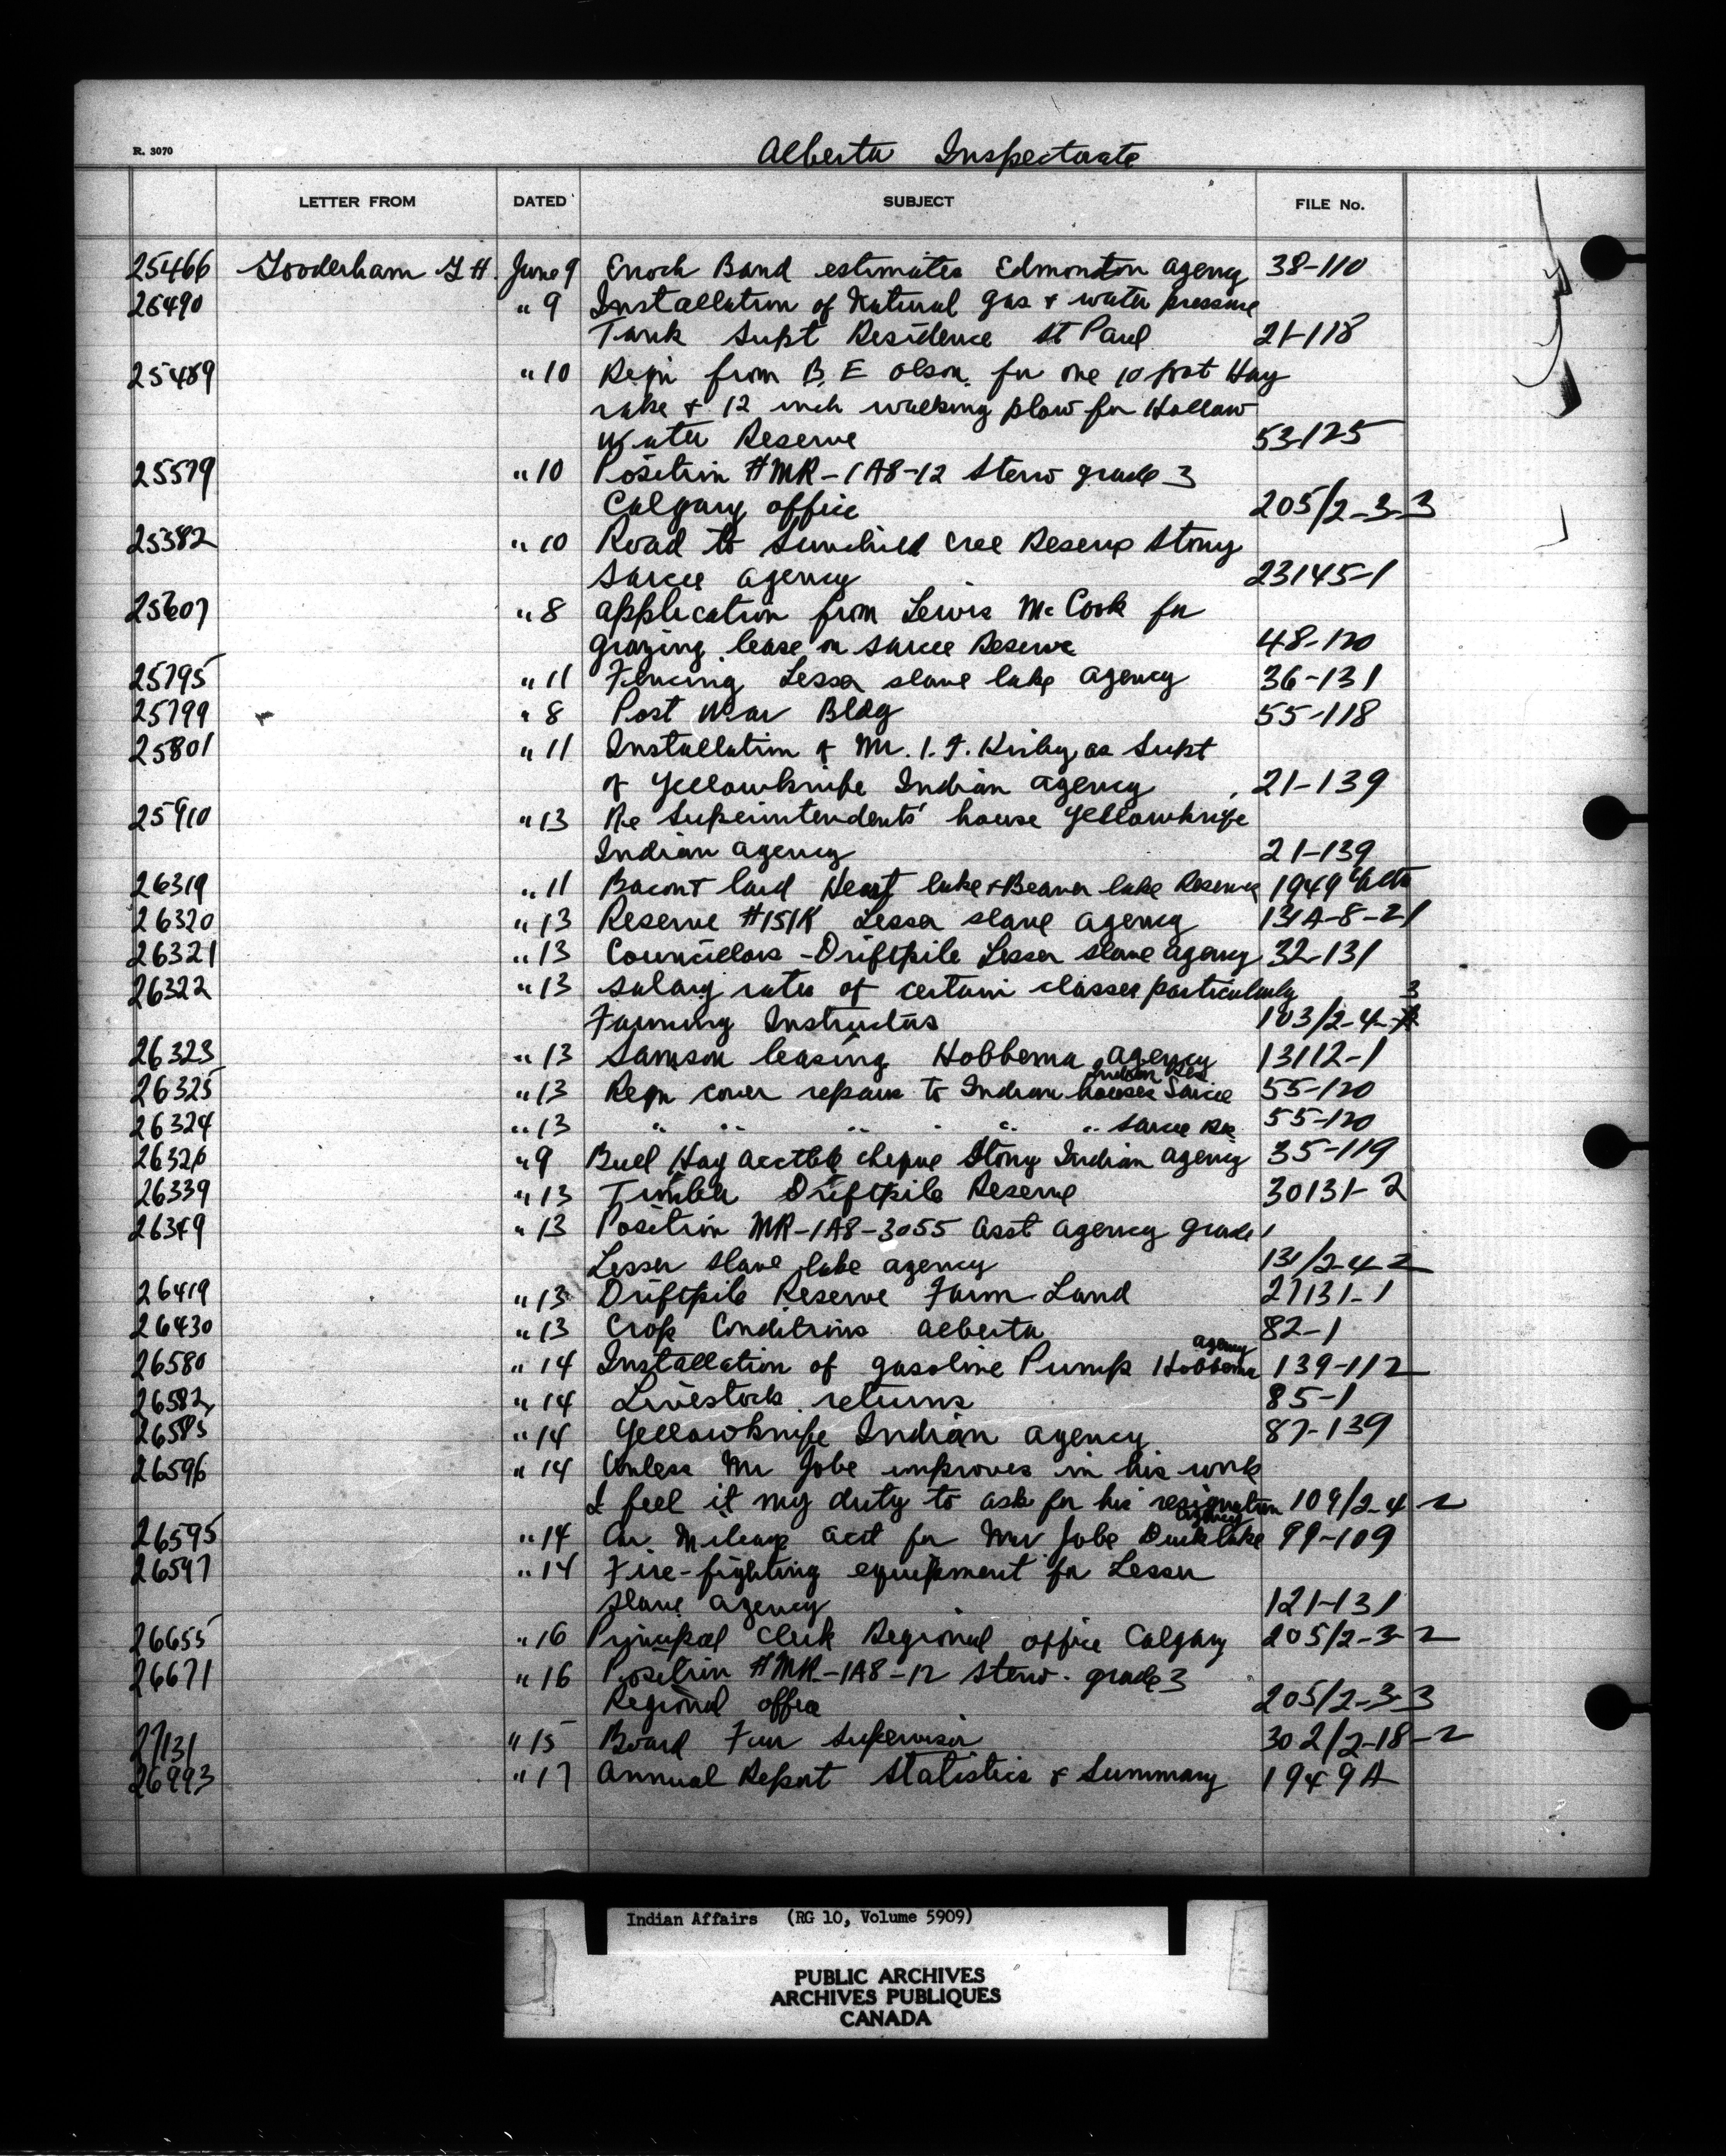 R. 3070
Alberta Inspectorate
LETTER FROM DATED SUBJECT FILE No.
25466 Gooderham G H. June 9 Enoch Band estimates Edmonton agency 38-110
25490 " 9 Installation of Natural gas & water pressure
Tank Supt Residence St Paul 21-118
25489 " 10 Reqn from B. E Olson. for one 10 foot Hay
rake & 12 inch walking plow for Hollow
Water Reserve 53-125
25579 " 10 Position #MR-1A8-12 Steno grade 3
Calgary office 205/2-3-3
25382 " 10 Road to Sunchild Cree Reserve Stony
Sarcee agency 23145-1
25607 " 8 application from Lewis McCook for
grazing lease on Sarcee Reserve 48-120
25795 " 11 Fencing Lesser slave lake agency 36-131
25799 " 8 Post War Bldg 55-118
25801 " 11 Installation of Mr. I. F. Kirby as Supt
of Yellowknife Indian agency 21-139
25910 " 13 Re Superintendents' house Yellowknife
Indian agency 21-139
26319 " 11 Bacon & lard Heart lake & Beaver lake Reserve 1949
26320 " 13 Reserve #151K Lesser slave agency 131A-8-21
26321 " 13 Councillors - Driftpile Lesser slave agency 32-131
26322 " 13 Salary rates of certain classes particularly 3
Farming Instructors 103/2-4-
26323 " 13 Samson leasing Hobbema agency 13112-1
Indian Res
26325 " 13 Reqn cover repairs to Indian houses Sarcee 55-120
26324 " 13 " " " " " " Sarcee Res 55-120
26326 " 9 Buell Hay acctble cheque Stony Indian agency 35-119
26339 " 13 Timber Driftpile Reserve 30131-2
26349 " 13 Position MR-1A8-3055 Asst agency grade 1
Lesser slave lake agency 131/2-4-2
26419 " 13 Driftpile Reserve Farm Land 27131-1
26430 " 13 Crop Conditions Alberta 82-1
agency
26580 " 14 Installation of gasoline Pump Hobbema 139-112
26582 " 14 Livestock returns 85-1
26583 " 14 Yellowknife Indian agency 87-139
26596 " 14 Unless Mr Jobe improves in his work
I feel it my duty to ask for his resignation 109/2-4-2
agency
26595 " 14 Car Mileage acct for Mr Jobe Duck lake 99-109
26597 " 14 Fire-fighting equipment for Lesser
slave agency 121-131
26655 " 16 Principal Clerk Regional office Calgary 205/2-3-2
26671 " 16 Position #MR-1A8-12 Steno. grade 3
Regional office 205/2-3-3
27131 " 15 Board Fur Supervisor 302/2-18-2
26993 " 17 Annual Report Statistics & Summary 1949A
Indian Affairs (RG 10, Volume 5909)
PUBLIC ARCHIVES
ARCHIVES PUBLIQUES
CANADA